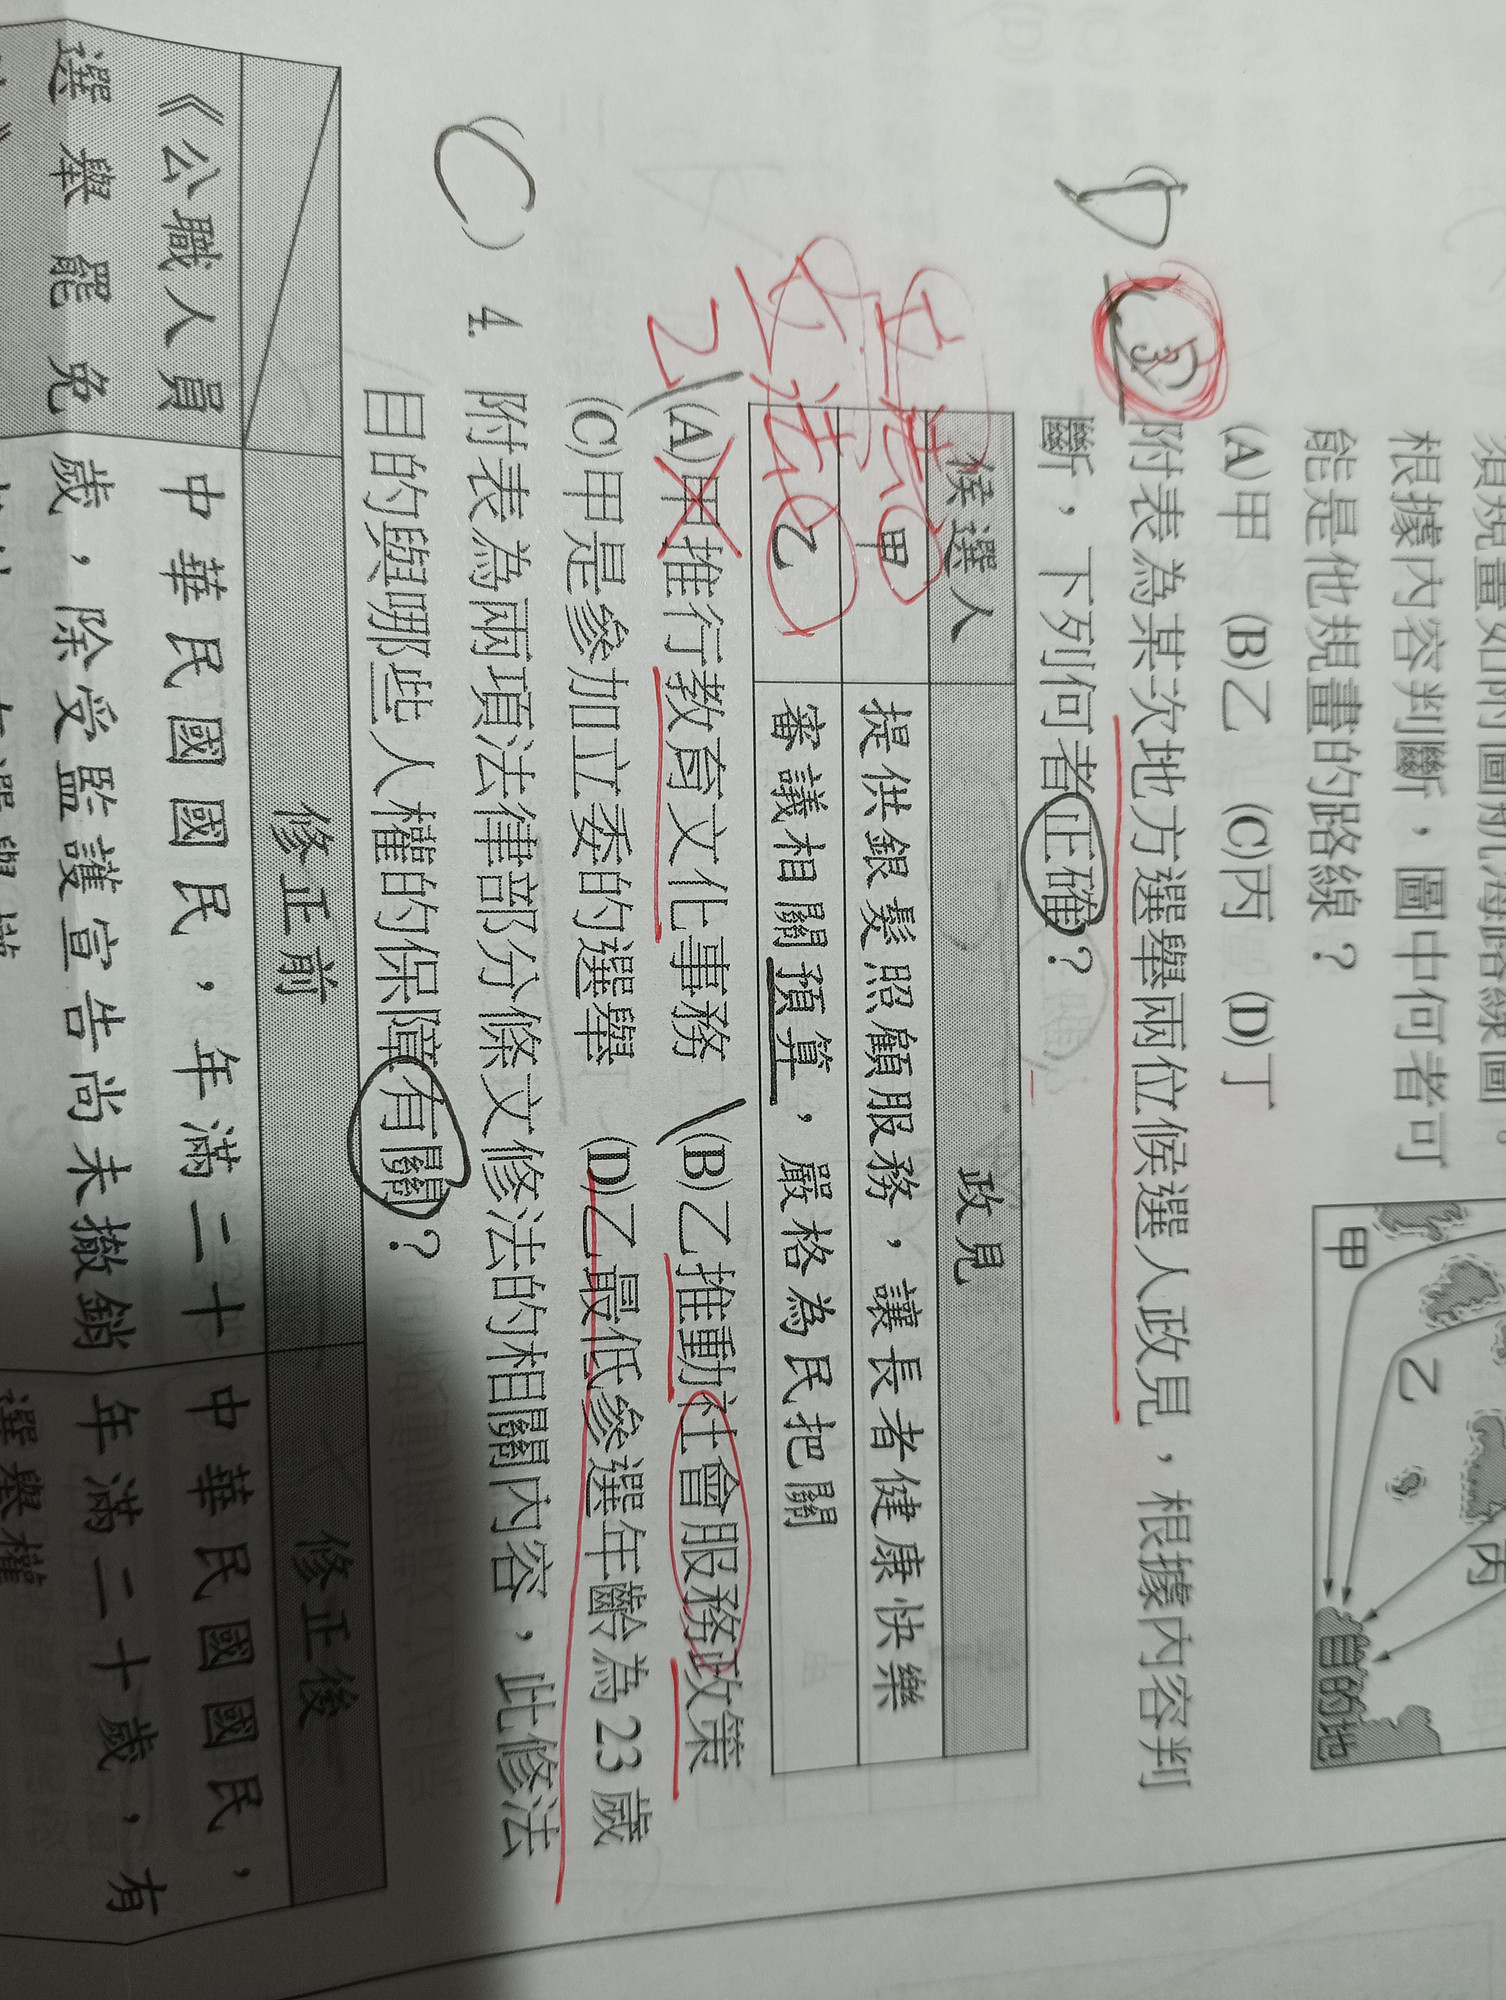 須規畫如附圖航海路線圖。
根據內容判斷，圖中何者可
能是他規畫的路線？
(A)甲 (B)乙 (C)丙 (D)丁
甲
乙
丙
目的地
D
3
附表為某次地方選舉兩位候選人政見，根據內容判
斷，下列何者正確？
候選人 政見
甲 提供銀髮照顧服務，讓長者健康快樂
乙 審議相關預算，嚴格為民把關
(A)甲推行教育文化事務 (B)乙推動社會服務政策
(C)甲是參加立委的選舉 (D)乙最低參選年齡為23歲
C ) 4. 附表為兩項法律部分條文修法的相關內容，此修法
目的與哪些人權的保障有關？
修正前 修正後
《公職人員 中華民國國民，年滿二十 中華民國國民，
選舉罷免 歲，除受監護宣告尚未撤銷 年滿二十歲，有
選舉權